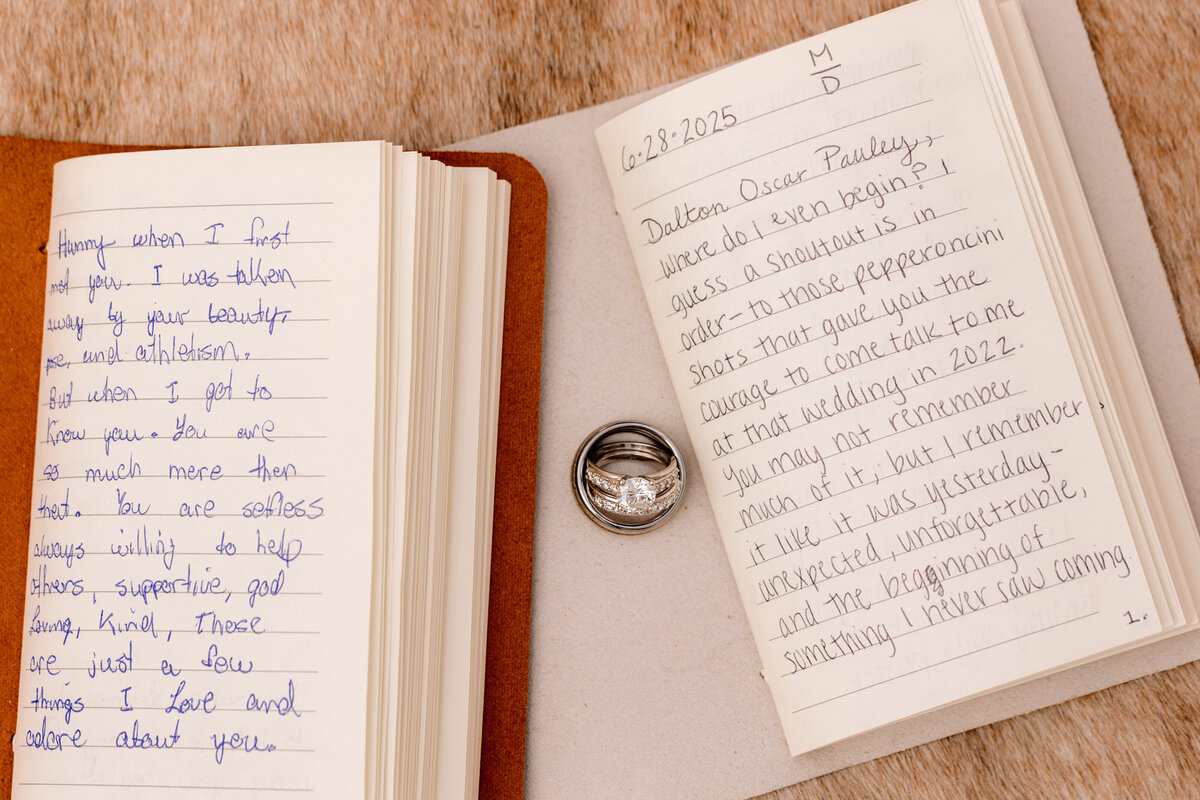 Hunny when I first
met you. I was taken
away by your beauty,
and athletism.
But when I got to
Know you. You are
so much more then
that. You are selfless
always willing to help
others, supportive, god
loving, Kind, Those
are just a few
things I Love and
adore about you.
M
D
6·28·2025
Dalton Oscar Pauley,
where do I even begin? I
guess a shoutout is in
order- to those pepperoncini
shots that gave you the
courage to come talk to me
at that wedding in 2022.
You may not remember
much of it, but I remember
it like it was yesterday-
unexpected, unforgettable,
and the beginning of
something I never saw coming.
1.